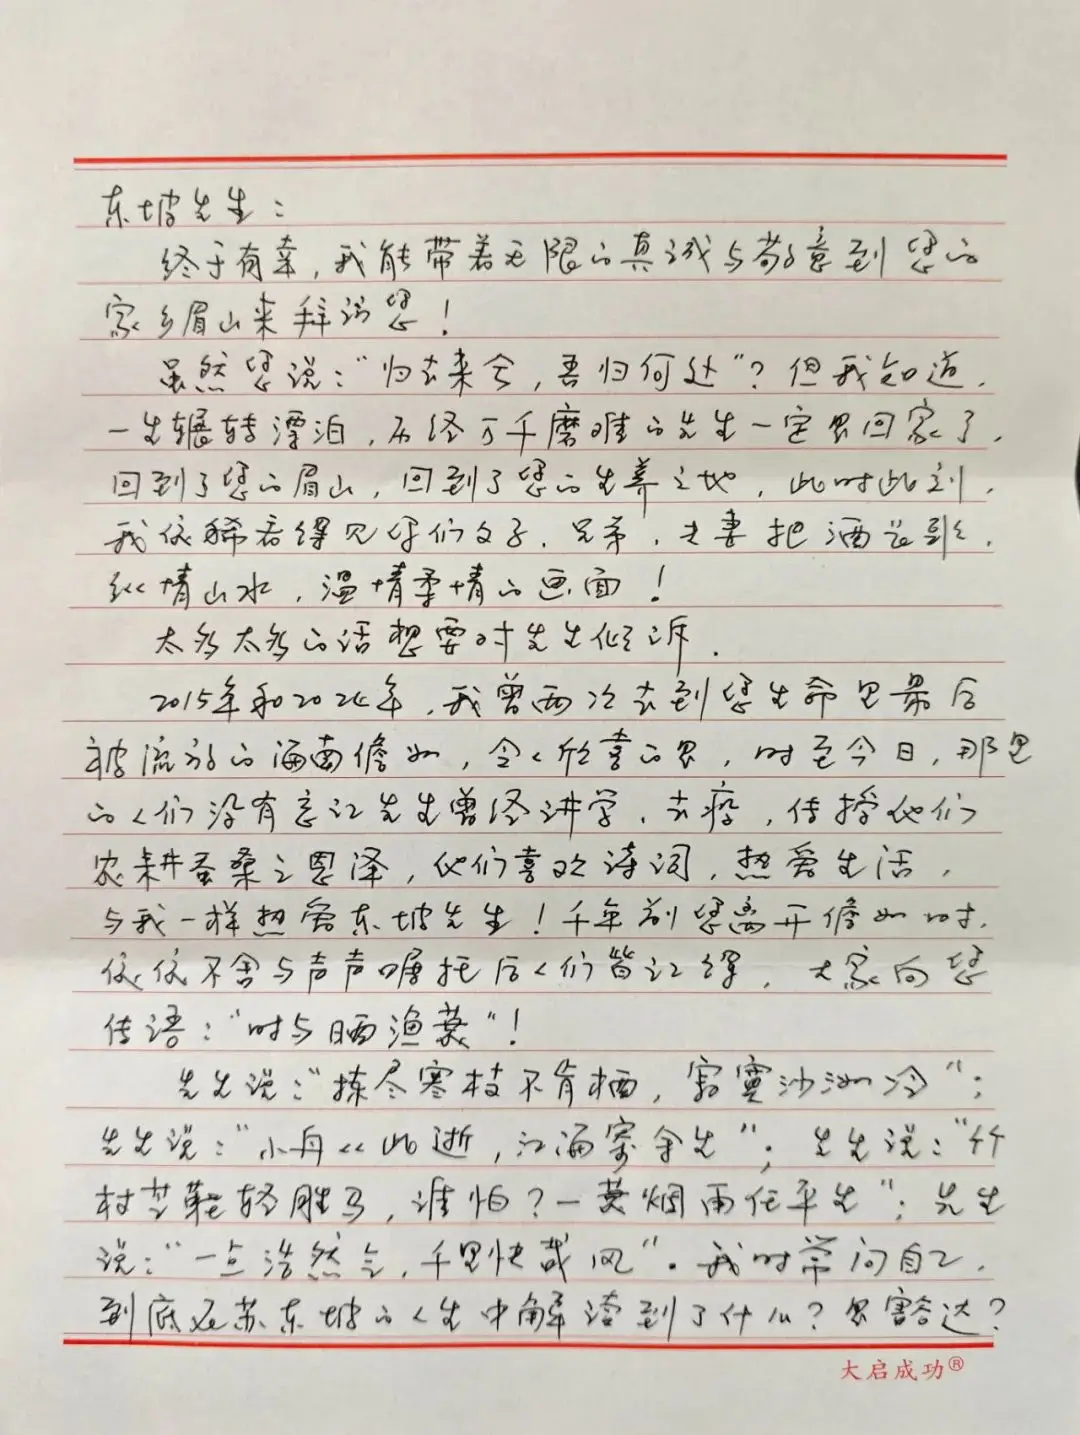 东坡先生：
终于有幸，我能带着无限的真诚与敬意到您的
家乡眉山来拜谒您！
虽然您说：“归去来兮，吾归何处”？但我知道，
一生辗转漂泊，历经万千磨难的先生一定是回家了，
回到了您的眉山，回到了您的生养之地，此时此刻，
我依稀看得见你们父子、兄弟、夫妻把酒长歌，
纵情山水，温情柔情的画面！
太多太多的话想要对先生倾诉．
2015年和2024年，我曾两次去到您生命里最后
被流放的海南儋州，令人欣喜的是，时至今日，那里
的人们没有忘记先生曾经讲学、去疫，传授他们
农耕蚕桑之恩泽，他们喜欢诗词，热爱生活，
与我一样热爱东坡先生！千年前您离开儋州时，
依依不舍与声声嘱托后人们皆记得，大家向您
传语：“时与晒渔蓑”！
先生说：“拣尽寒枝不肯栖，寂寞沙洲冷”；
先生说：“小舟从此逝，江海寄余生”；先生说：“竹
杖芒鞋轻胜马，谁怕？一蓑烟雨任平生”；先生
说：“一点浩然气，千里快哉风”。我时常问自己，
到底在苏东坡的人生中解读到了什么？是豁达？
大启成功®